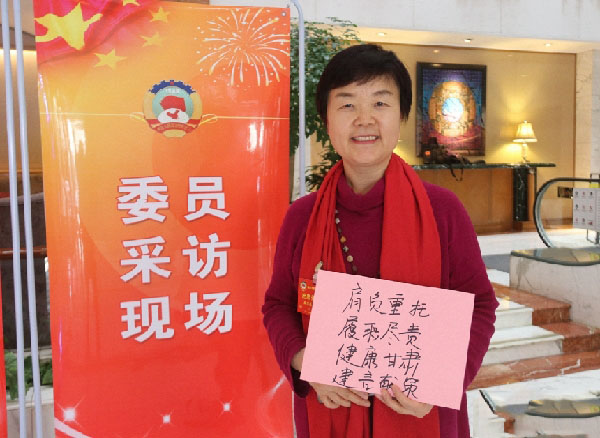 委员
采访
现场
肩负重托
履职尽责
健康甘肃
建言献策